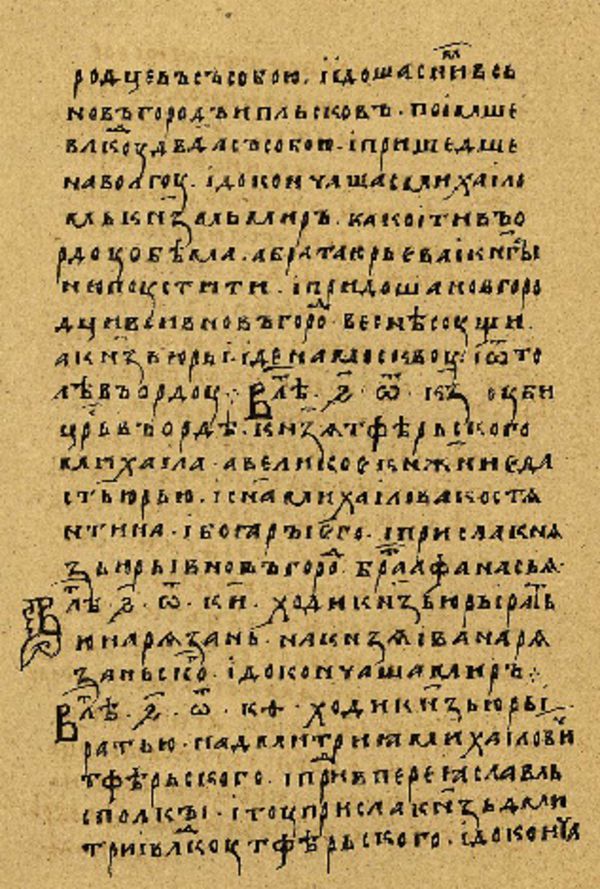 родцевъ съ собою · і їдоша с ни всь
новъгородъ и пльсковъ · поимше
влку двда съ собою · і пришедше
на волгоу · і докончаша с михаіло
мь кнземь миръ · како ити въ о
рдоу обѣма · а брата юрьева і кнгы
ню поустити · і придоша новгоро
дци вси в новъгоро · веснѣ соущи ·
а кнзь юрьі · іде на москвоу · і ѿто
лѣ въ ордоу ·:· В лѣ · ҂ѕ · ѿ · кз оуби
црь въ ордѣ · кнзя тфѣрьского
михаіла · а великое кнжние да
сть юрью · і сна михаілова костя
нтина · і бояры его · і присла кня
зь юрьі в новъгоро · бра афанасья ·
В лѣ · ҂ѕ · ѿ · ки · ходи кнзь юрьі рать
ю на рязань · на кнзя івана ря
заньско · і докончаша миръ ·:·
В лѣ · ҂ѕ · ѿ · кѳ · ходи кнзь юрьі ·
ратью · на дмитрия михаілови
тфѣрьского · і при в переяславль
с полкы · і тоу присла кнзь дми
триі влкоу тфѣрьского · і докончя